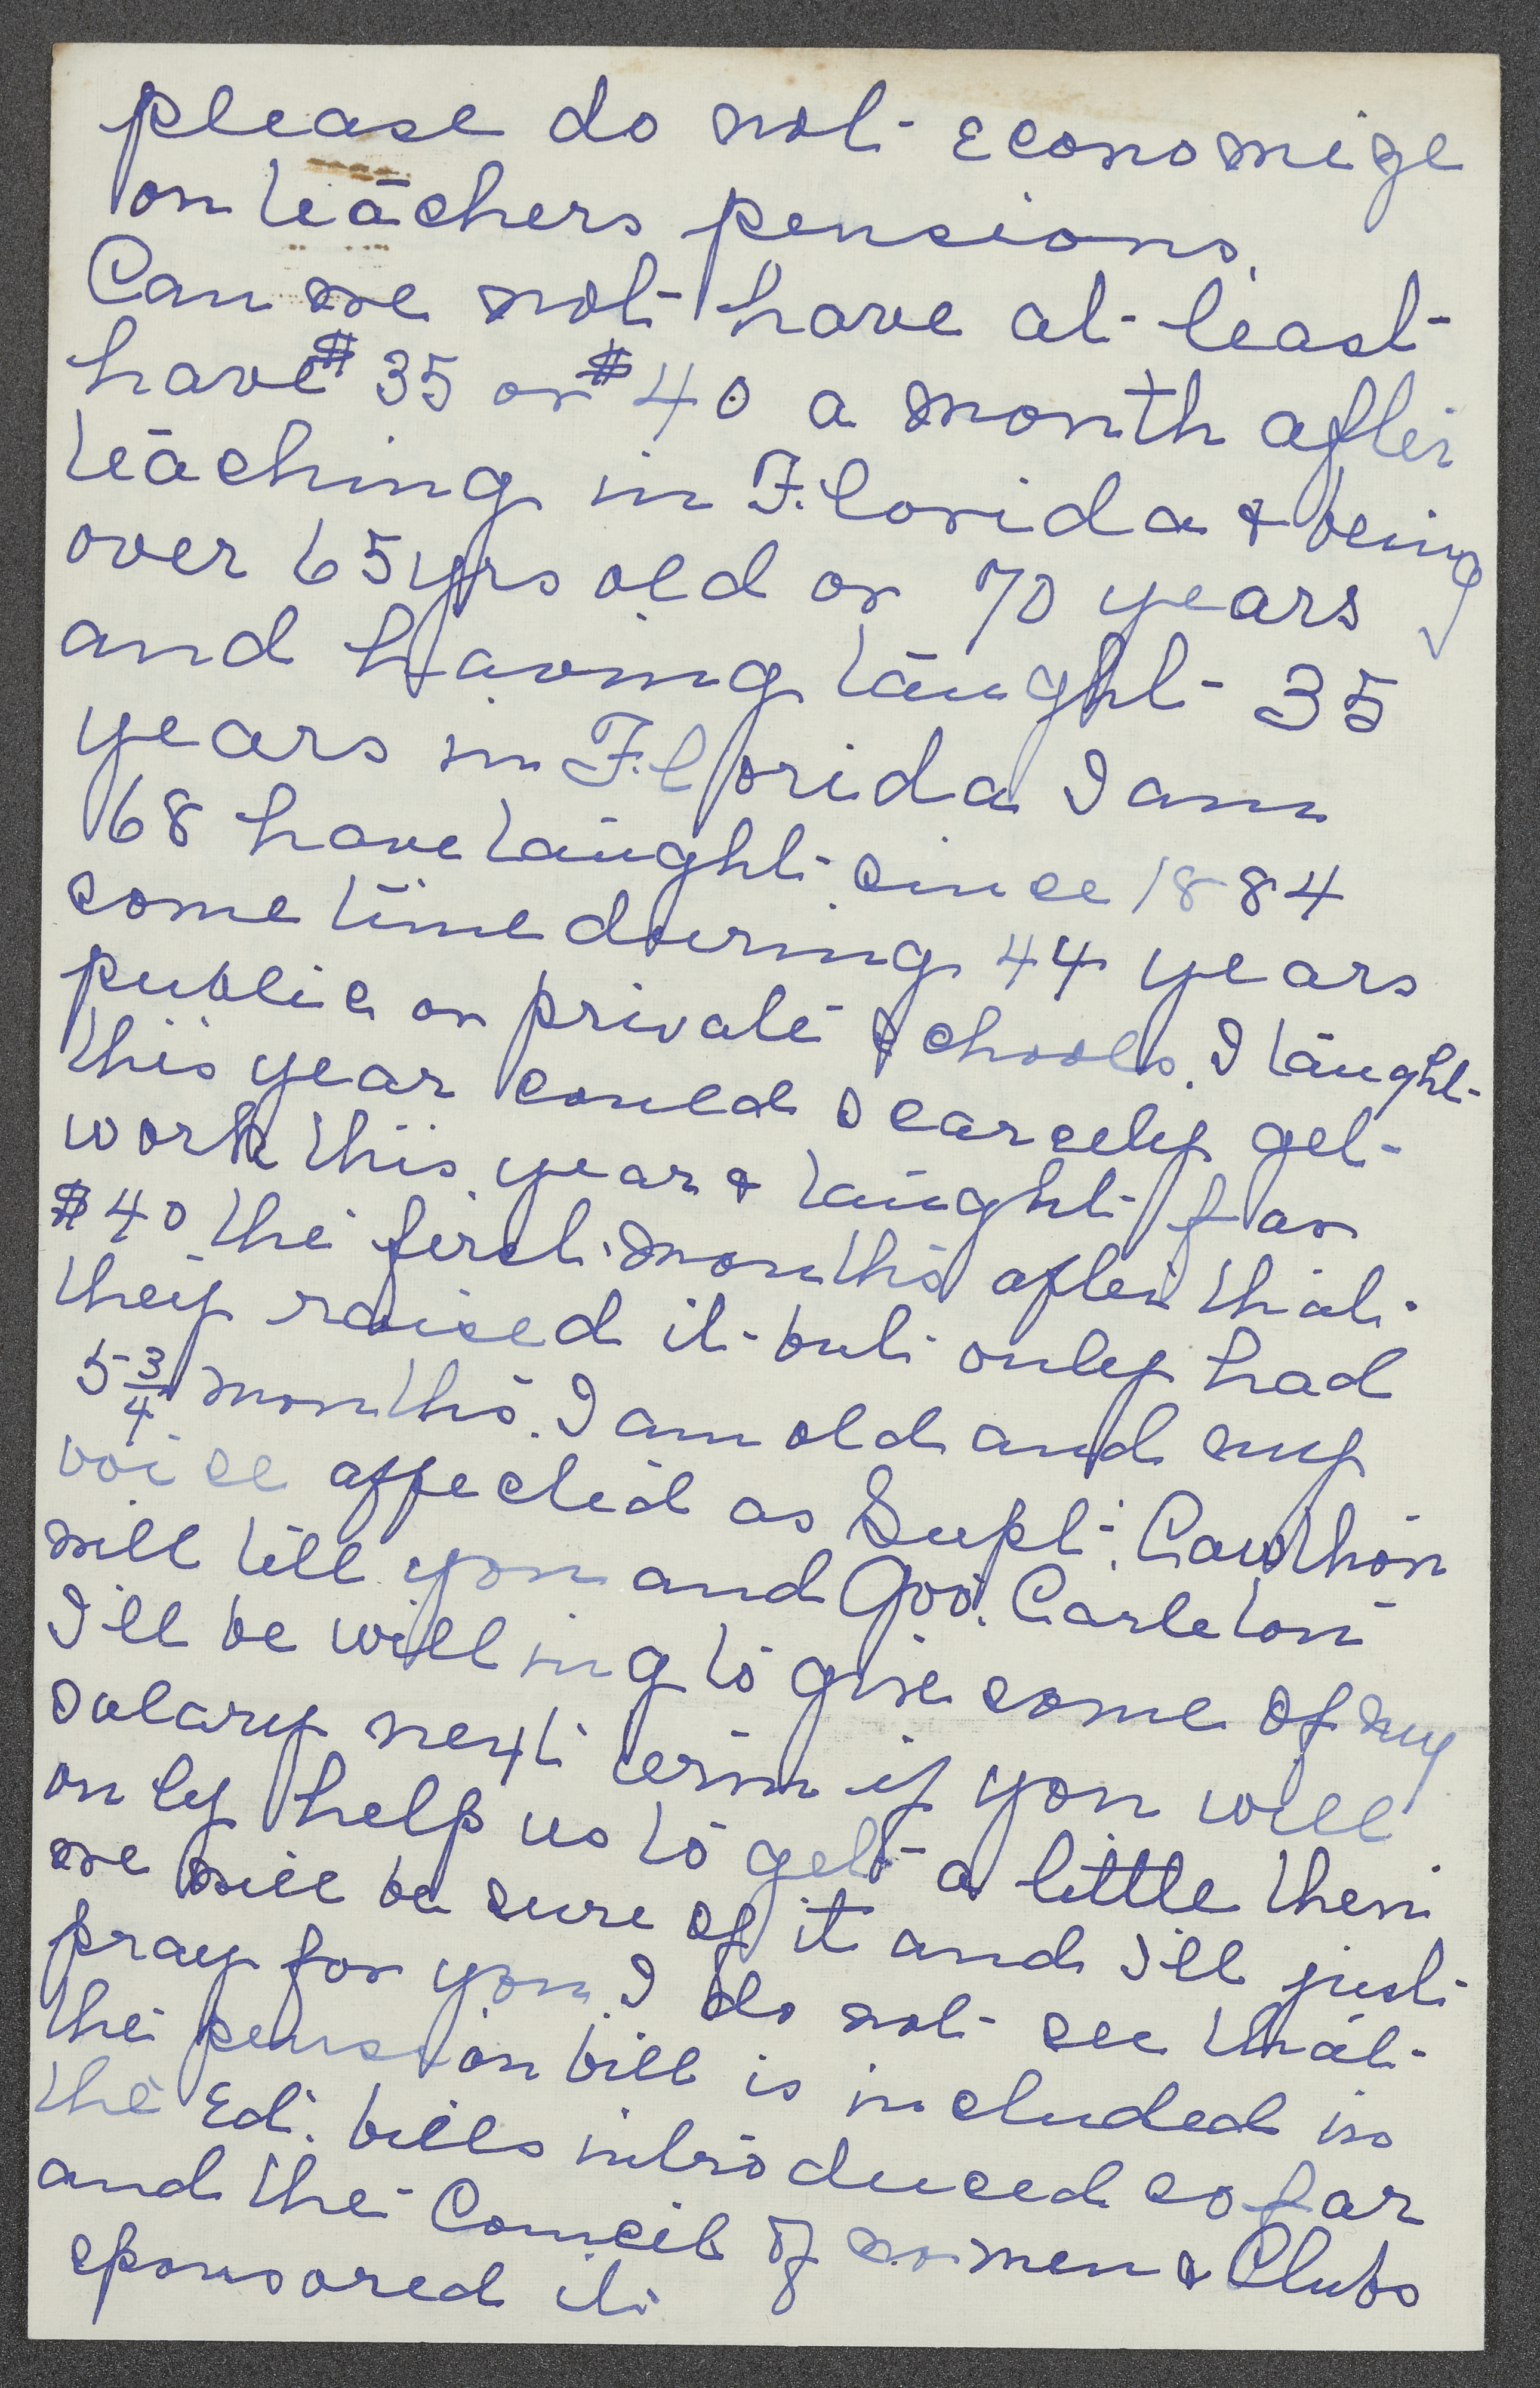 please do not economize
on teachers pensions.
Can we not have at least
have $35 or $40 a month after
teaching in Florida & being
over 65 yrs old or 70 years
and having taught 35
years in Florida I am
68 have taught since 1884
some time during 44 years
public or private schools. I taught
this year could scarcely get
work this year & taught for
$40 the first months after that
they raised it but only had
5 3/4 months. I am old and my
voice affected as Supt. Cawthon
will tell you and Gov. Carleton
I'll be willing to give some of my
salary next term if you will
only help us to get a little then
we will be sure of it and I'll just
pray for you. I do not see that
the pension bill is included in
the Ed. bills introduced so far
and the Council of women & Clubs
sponsored it.